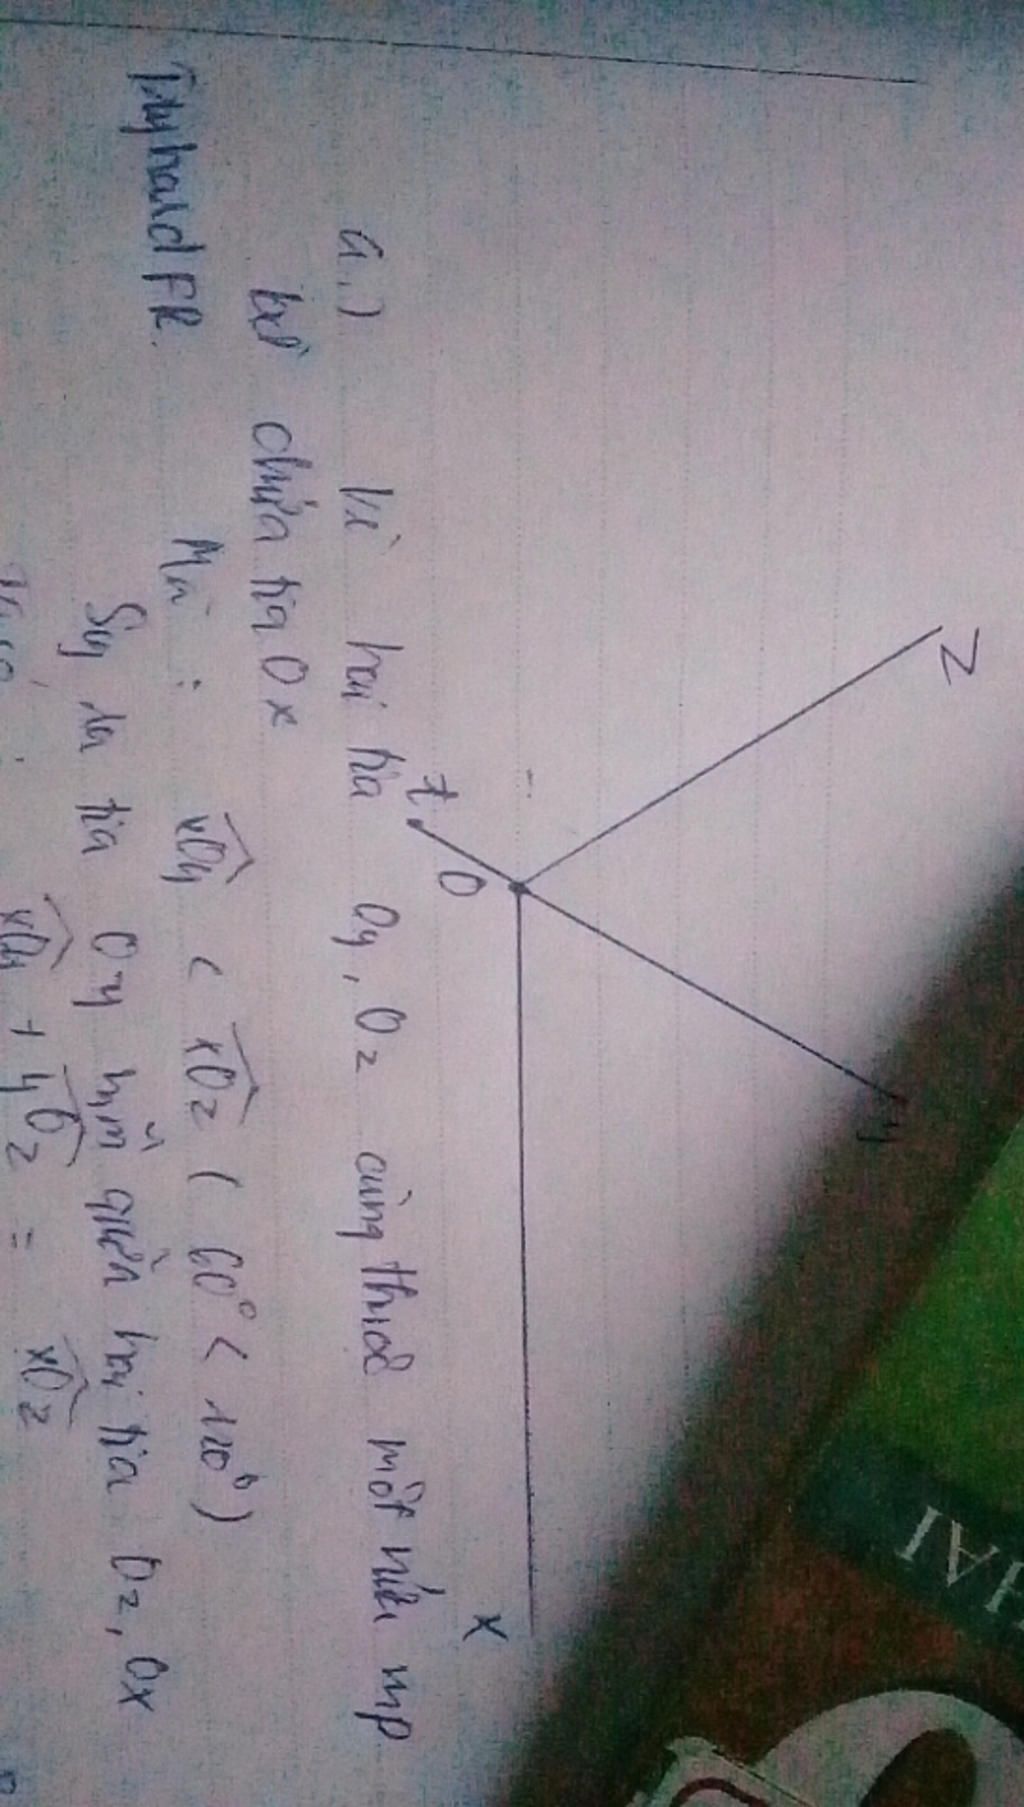 z
y
t
O
x
a.) Vì hai tia Oy, Oz cùng thuộc một nửa mp
bờ chứa tia Ox
Mà : xOy < xOz ( 60° < 120° )
Suy ra tia Oy nằm giữa hai tia Oz, Ox
xOy + yOz = xOz
HAI